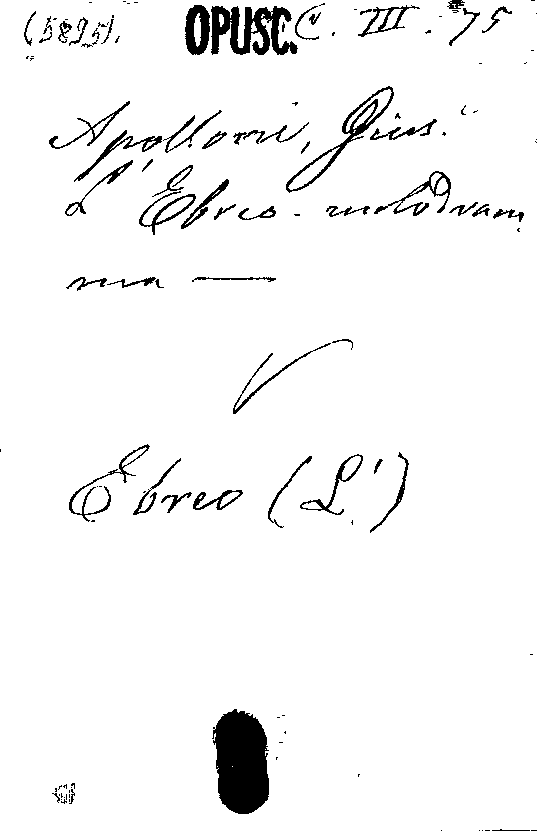 (5895). OPUSC. C. III. 75
Apolloni, Gius.
L'Ebreo - melodram
ma —
V
Ebreo (L')